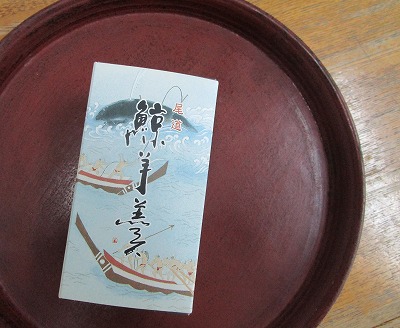 尾道
鯨羊羹